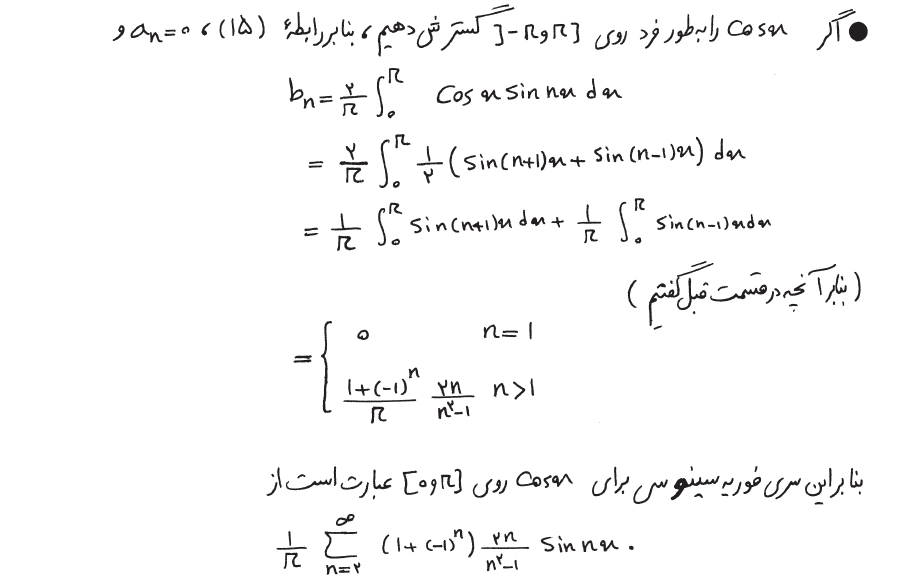 ● اگر cos x را به طور فرد روی [-π و π] گسترش دهیم، بنابر رابطهٔ (۱۵)، aₙ=۰ و
bₙ = ۲/π ∫₀^π cos x sin nx dx
= ۲/π ∫₀^π ۱/۲ (sin(n+1)x + sin(n-1)x) dx
= ۱/π ∫₀^π sin(n+1)x dx + ۱/π ∫₀^π sin(n-1)x dx
(بنابر آنچه در قسمت قبل گفتیم)
= { ۰ n=1
(1+(-1)ⁿ)/π ۲n/(n^۲-1) n>1
بنابراین سری فوریه سینوسی برای cos x روی [۰ و π] عبارت است از
۱/π ∑_{n=۲}^∞ (1+(-1)ⁿ) ۲n/(n^۲-1) sin nx .